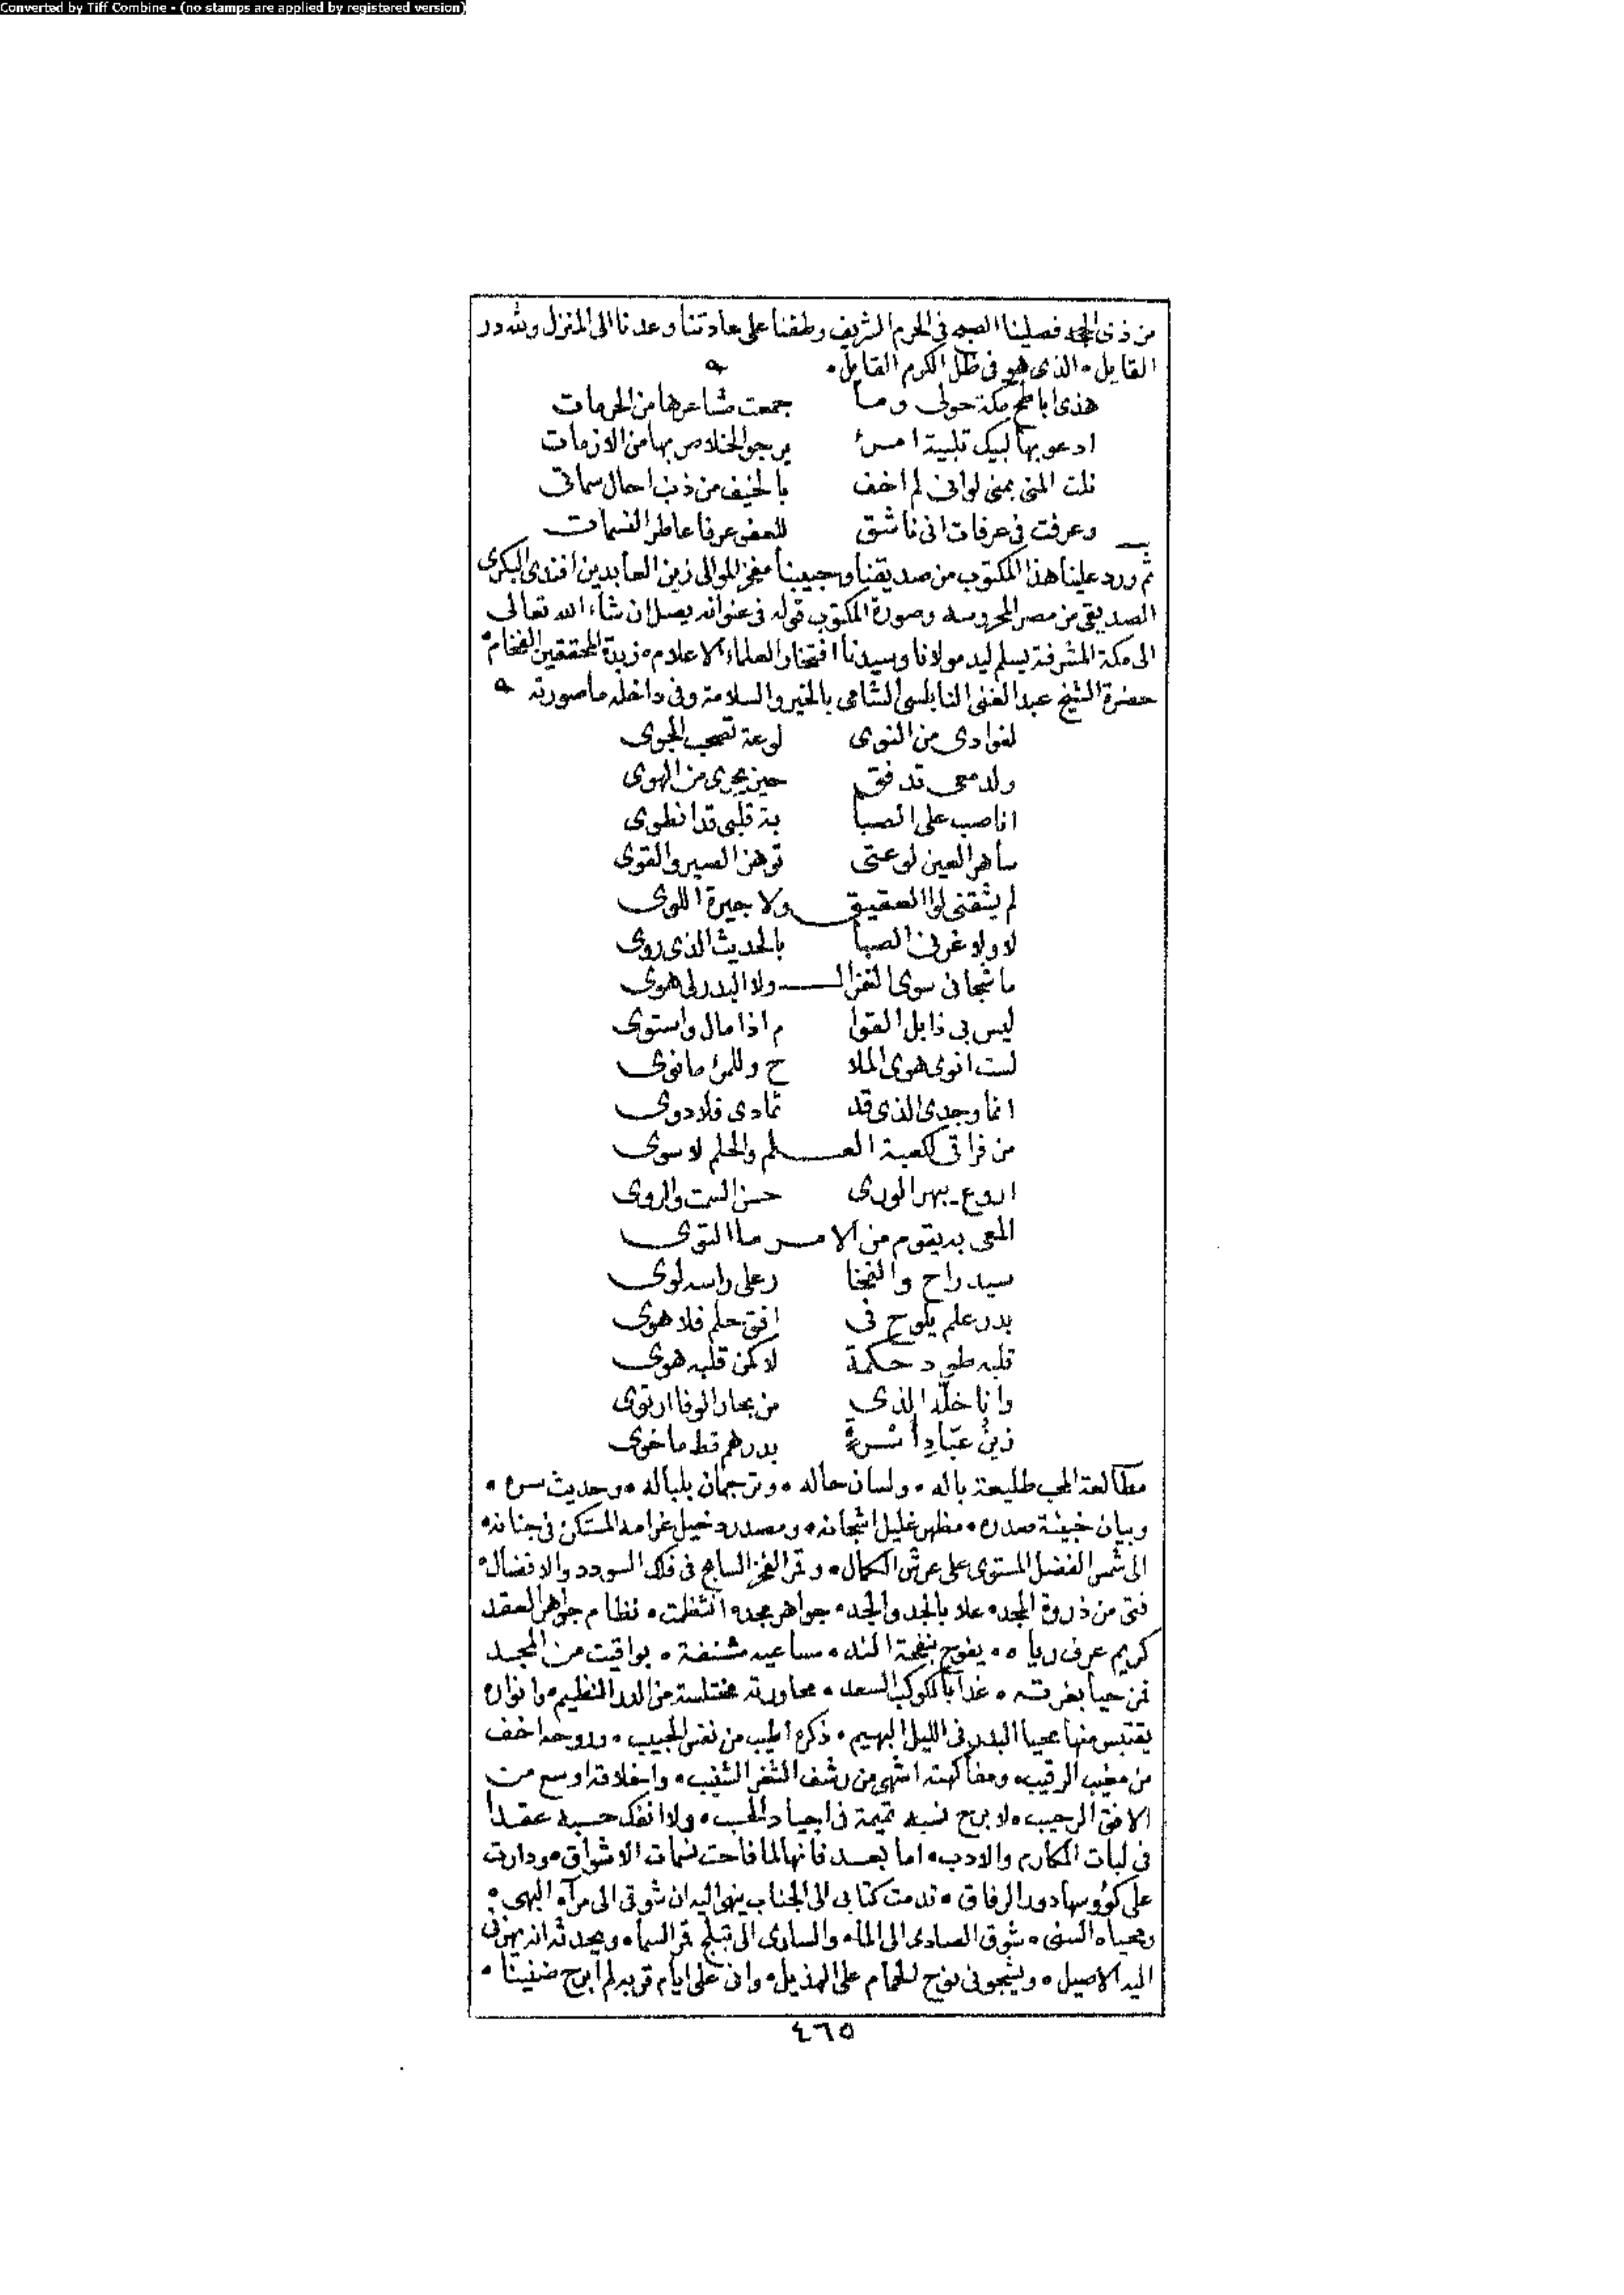 Converted by Tiff Combine - (no stamps are applied by registered version)
من ذى الحجه فصلينا الصبح فى الحرم الشريف وطفنا على عادتنا وعدنا الى المنزل ولله در
القايل • الذى هو فى ظل الكرم القايل •
هذى اباطح مكة حولى وما جمعت مشاعرها من الحرمات
ادعو بها لبيك تلبية امرئ يرجو الخلاص بها من الازمات
نلت المنى بمنى لوانى لم اخف بالخيف من ذنب احال سماتى
وعرفت فى عرفات انى ناشق للعفو عرفا عاطر النسمات
ثم ورد علينا هذا المكتوب من صديقنا وحبيبنا مفخر الموالى زين العابدين افندى البكرى
الصديقى من مصر المحروسه وصورة المكتوب قوله فى عنوانه يصل ان شاء الله تعالى
الى مكة المشرفة يسلم ليد مولانا وسيدنا افتخار العلماء الاعلام • زبدة المحققين الفخام •
حضرة الشيخ عبد الغنى النابلسى الشامى بالخير والسلامة وفى داخله ما صورته
لفوادى من النوى لوعة تصحب الجوى
ولدمعى تدفق حين يجرى من الهوى
انا صب على الصبا بة قلبى قد انطوى
ساهر العين لوعتى توهن الصبر والقوى
لم يشقنى لوا العقيق ولا جيرة اللوى
لا ولا غرنى الصبا بالحديث الذى روى
ما شجانى سوى الغزال ولا البدر لى هوى
ليس بى ذابل القوا م اذا مال واستوى
لست انوى هوى الملا ح وللمرئ ما نوى
انما وجدى الذى قد تمادى فلا دوى
من فراقى لكعبة العلم والحلم لا سوى
اروع يبهر الورى حسن السمت والروى
المعى به يقوم من الامر ما التوى
سيد راح والفخا ر على راسه لوى
بدر علم يلوح فى افق حلم فلا هوى
قلبه طود حكمة لا كمن قلبه هوى
وانا خله الذى من بحار الوفا ارتوى
زين عباد اسرة بدرهم قط ما خوى
مطالعة المحب طليعة باله • ولسان حاله • وترجمان بلباله • وحديث سره •
وبيان خبيئة صدره • مظهر غليل اشجانه • ومصدر دخيل غرامه المستكن فى جنانه •
الى شمس الفضل المستوى على عرش الكمال • وقمر الفخر السابح فى فلك السودد والافضال •
فتى من ذروة المجد • علا بالجد والجد • جواهر مجده انتظمت • نظام جواهر العقد
كريم عرف رياه • يفوح بنفحة الند • مساعيه مشنفة • يواقيت من المجد
فمن حيا بغرته • غدا بالكوكب السعد • محاورته مختلسة من الدر النظيم • وانواره
يقتبس منها محيا البدر فى الليل البهيم • ذكره اطيب من نفس الحبيب • وروحه اخف
من مغيب الرقيب • ومفاكهته اشهى من رشف الثغر الشنيب • واخلاقه اوسع من
الافق الرحيب • لا برح نسبه تميمة فى اجياد الحسب • ولا انفك حسبه عقدا
فى لبات المكارم والادب • اما بعد فانها لما فاحت نسمات الاشواق • ودارت
على كؤوسها دور الرفاق • قدمت كتابى الى الجناب ينهى اليه ان شوقى الى مرآه البهى •
ومحياه السنى • شوق الصادى الى الماء والسارى الى تبلج قمر السماء • ويحدثه انه يهزنى
اليه الاصيل • ويشجونى نوح الحمام على الهديل • وانى على ايام قربه لم ابرح ضنينا •
٤٦٥